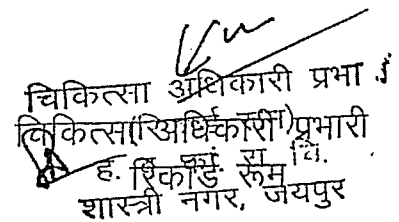 चिकित्सा अधिकारी प्रभा
चिकित्सा अधिकारी प्रभारी
ह. रिकॉर्ड रूम
शास्त्री नगर, जयपुर